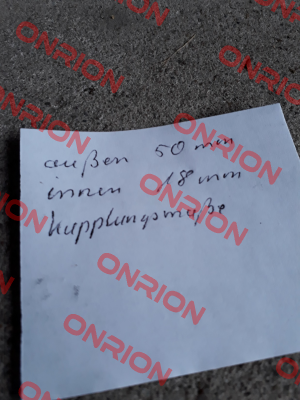 außen 50 mm
innen 18 mm
Kupplungsmaße
ONRION
ONRION
ONRION
ONRION
ONRION
ONRION
ONRION
ONRION
ONRION
ONRION
ONRION
ONRION